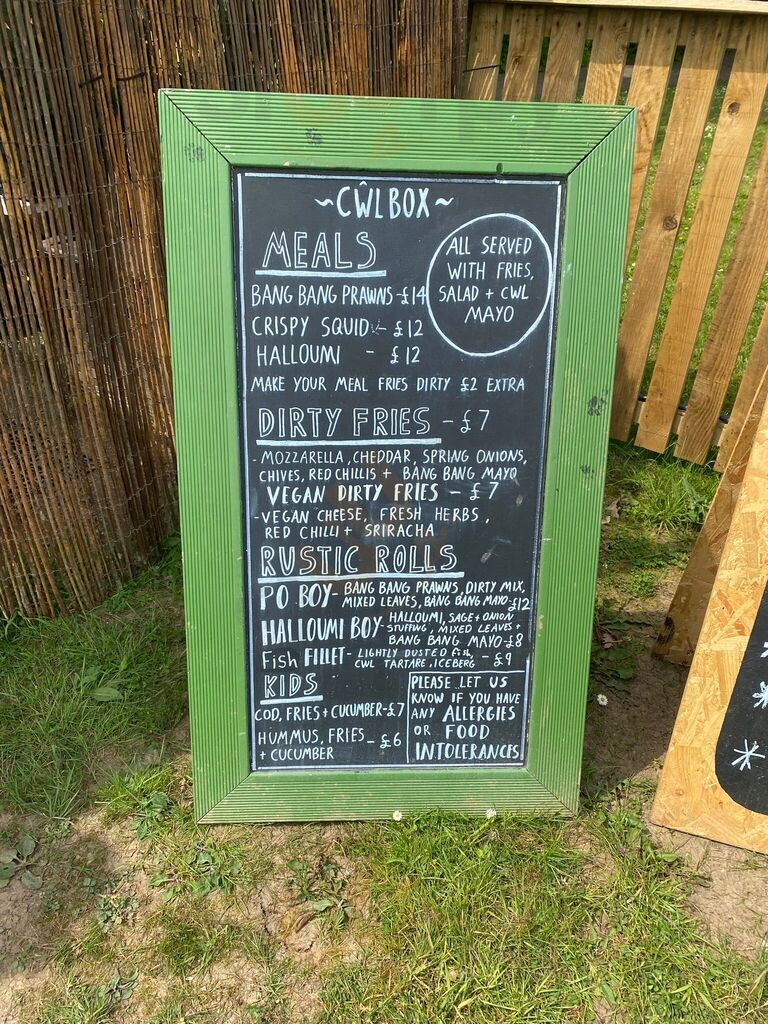 ~CŴLBOX~
MEALS
ALL SERVED
WITH FRIES,
SALAD + CWL
MAYO
BANG BANG PRAWNS -£14
CRISPY SQUID - £12
HALLOUMI - £12
MAKE YOUR MEAL FRIES DIRTY £2 EXTRA
DIRTY FRIES - £7
- MOZZARELLA, CHEDDAR, SPRING ONIONS,
CHIVES, RED CHILLIS + BANG BANG MAYO
VEGAN DIRTY FRIES - £7
- VEGAN CHEESE, FRESH HERBS,
RED CHILLI + SRIRACHA
RUSTIC ROLLS
PO BOY - BANG BANG PRAWNS, DIRTY MIX,
MIXED LEAVES, BANG BANG MAYO £12
HALLOUMI BOY - HALLOUMI, SAGE + ONION
STUFFING, MIXED LEAVES +
BANG BANG MAYO - £8
Fish FILLET - LIGHTLY DUSTED Fish,
CWL TARTARE, ICEBERG - £9
KIDS
COD, FRIES + CUCUMBER - £7
HUMMUS, FRIES - £6
+ CUCUMBER
PLEASE LET US
KNOW IF YOU HAVE
ANY ALLERGIES
OR FOOD
INTOLERANCES